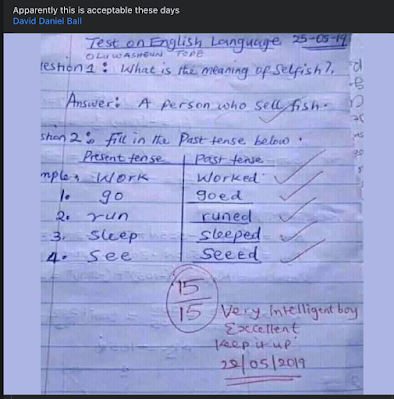 Apparently this is acceptable these days
David Daniel Ball
Test on English Language 25-05-19
OLUWASHEUN TOPE
estion 1: What is the meaning of selfish?.
Answer: A person who sell fish.
stion 2: fill in the Past tense below.
Present tense Past tense
mple: Work Worked
1. go goed
2. run runed
3. Sleep Sleeped
4. See Seeed
15
15
Very Intelligent boy
Excellent
Keep it up
22/05/2019